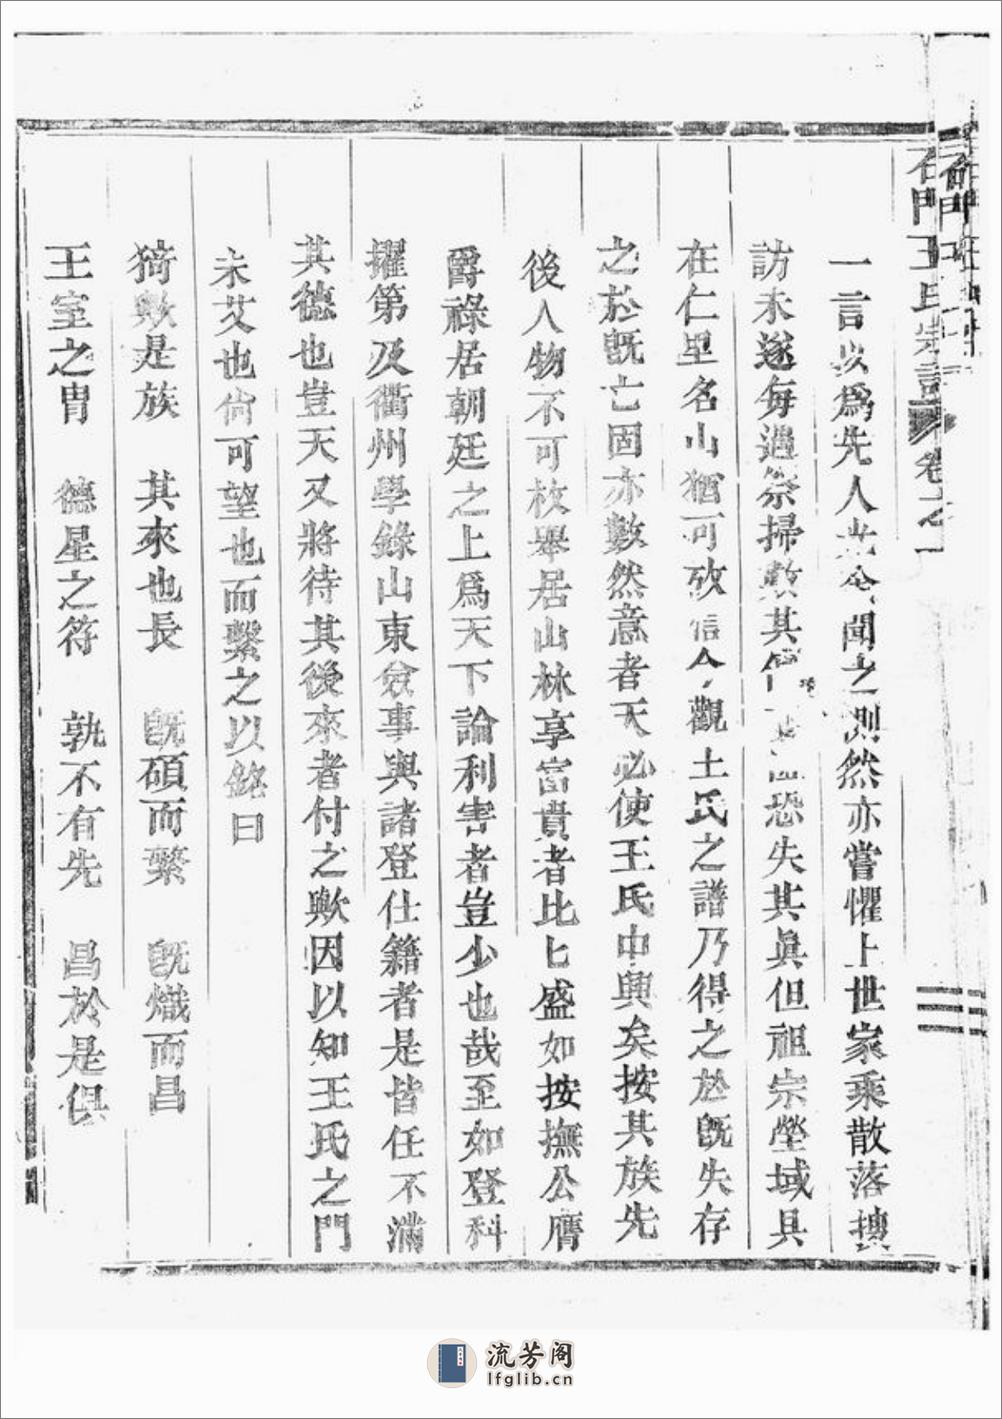 石門王氏宗譜 卷之一
一言以爲先人光令聞之測然亦嘗懼上世家乘散落摶
訪未遂每過祭掃數其 恐失其眞但祖宗塋域具
在仁里名山猶可攷信今觀王氏之譜乃得之於旣失存
之於旣亡固亦數然意者天必使王氏中興矣按其族先
後人物不可枚舉居山林享富貴者比比盛如按撫公膺
爵祿居朝廷之上爲天下論利害者豈少也哉至如登科
擢第及衢州學錄山東僉事與諸登仕籍者是皆任不滿
其德也豈天又將待其後來者付之歟因以知王氏之門
未艾也尚可望也而繫之以銘曰
猗歟是族 其來也長 旣碩而繁 旣熾而昌
王室之冑 德星之符 孰不有先 昌於是俱
流芳阁
lfglib.cn